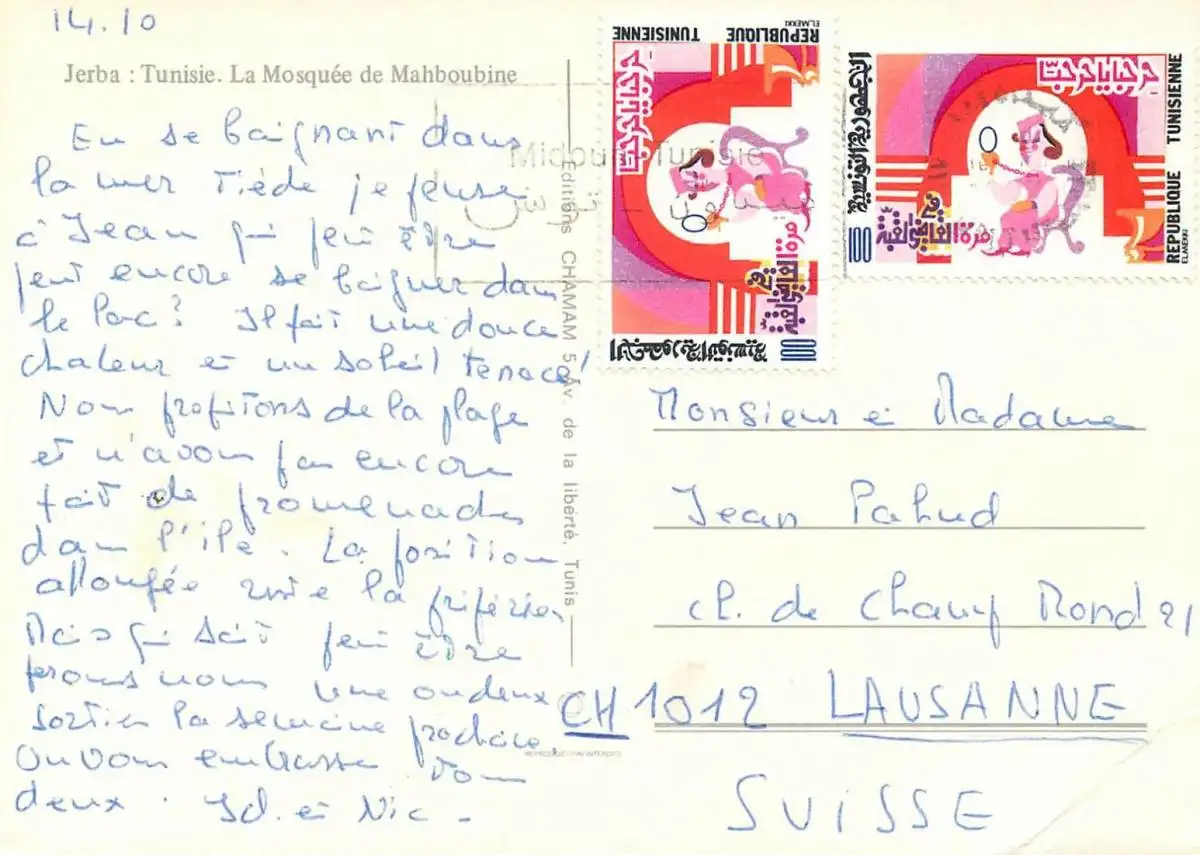 14.10
Jerba : Tunisie. La Mosquée de Mahboubine
En se baignant dans
la mer tiède je pense
à Jean qui peut être
peut encore se baigner dans
le lac? Il fait une douce
chaleur et un soleil tenace!
Nous profitons de la plage
et n'avons pas encore
fait de promenades
dans l'île. La position
allongée reste la préférée,
Mais qui sait peut être
ferons nous une ou deux
sorties la semaine prochaine,
On vous embrasse tous
deux. Jd. et Nic-
Editions CHAMAM 5 Av. de la liberté, Tunis
REPRODUCTION INTERDITE
Midoun Tunisie
ميدون - تونس
REPUBLIQUE TUNISIENNE
ELMEKKI
حرجايا حرجتّا
مرة العاتق في القبة
الجمهورية التونسية
100
REPUBLIQUE TUNISIENNE
ELMEKKI
حرجايا حرجتّا
مرة العاتق في القبة
الجمهورية التونسية
100
Monsieur et Madame
Jean Pahud
ch. de Champ Rond 21
CH 1012 LAUSANNE
SUISSE